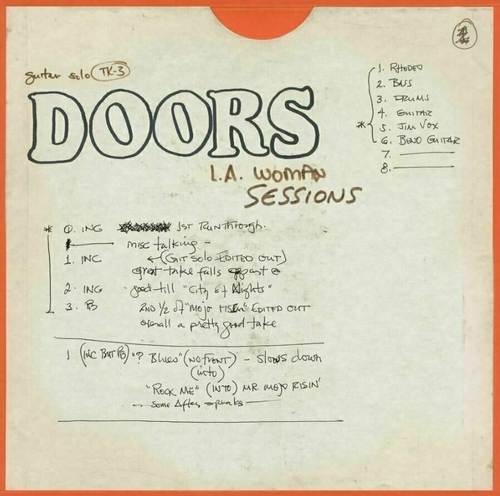 guitar solo TK-3
DOORS
L.A. WOMAN
SESSIONS
1. RHODES
2. BASS
3. DRUMS
4. GUITAR
* 5. JIM VOX
6. BEND GUITAR
7.
8.
* 0. INC 1ST RUNTHROUGH.
misc talking -
1. INC ← (GIT SOLO EDITED OUT)
great take falls apart @
2. ING good till "City of Nights"
3. PB 2ND 1/2 of "MOJO EDITED OUT
overall a pretty good take
1 (INC BUT PB) "? Blues" (NO FRONT) - Slows down
(into)
"ROCK ME" (INTO) MR. MOJO RISIN'
- SOME AFTER -